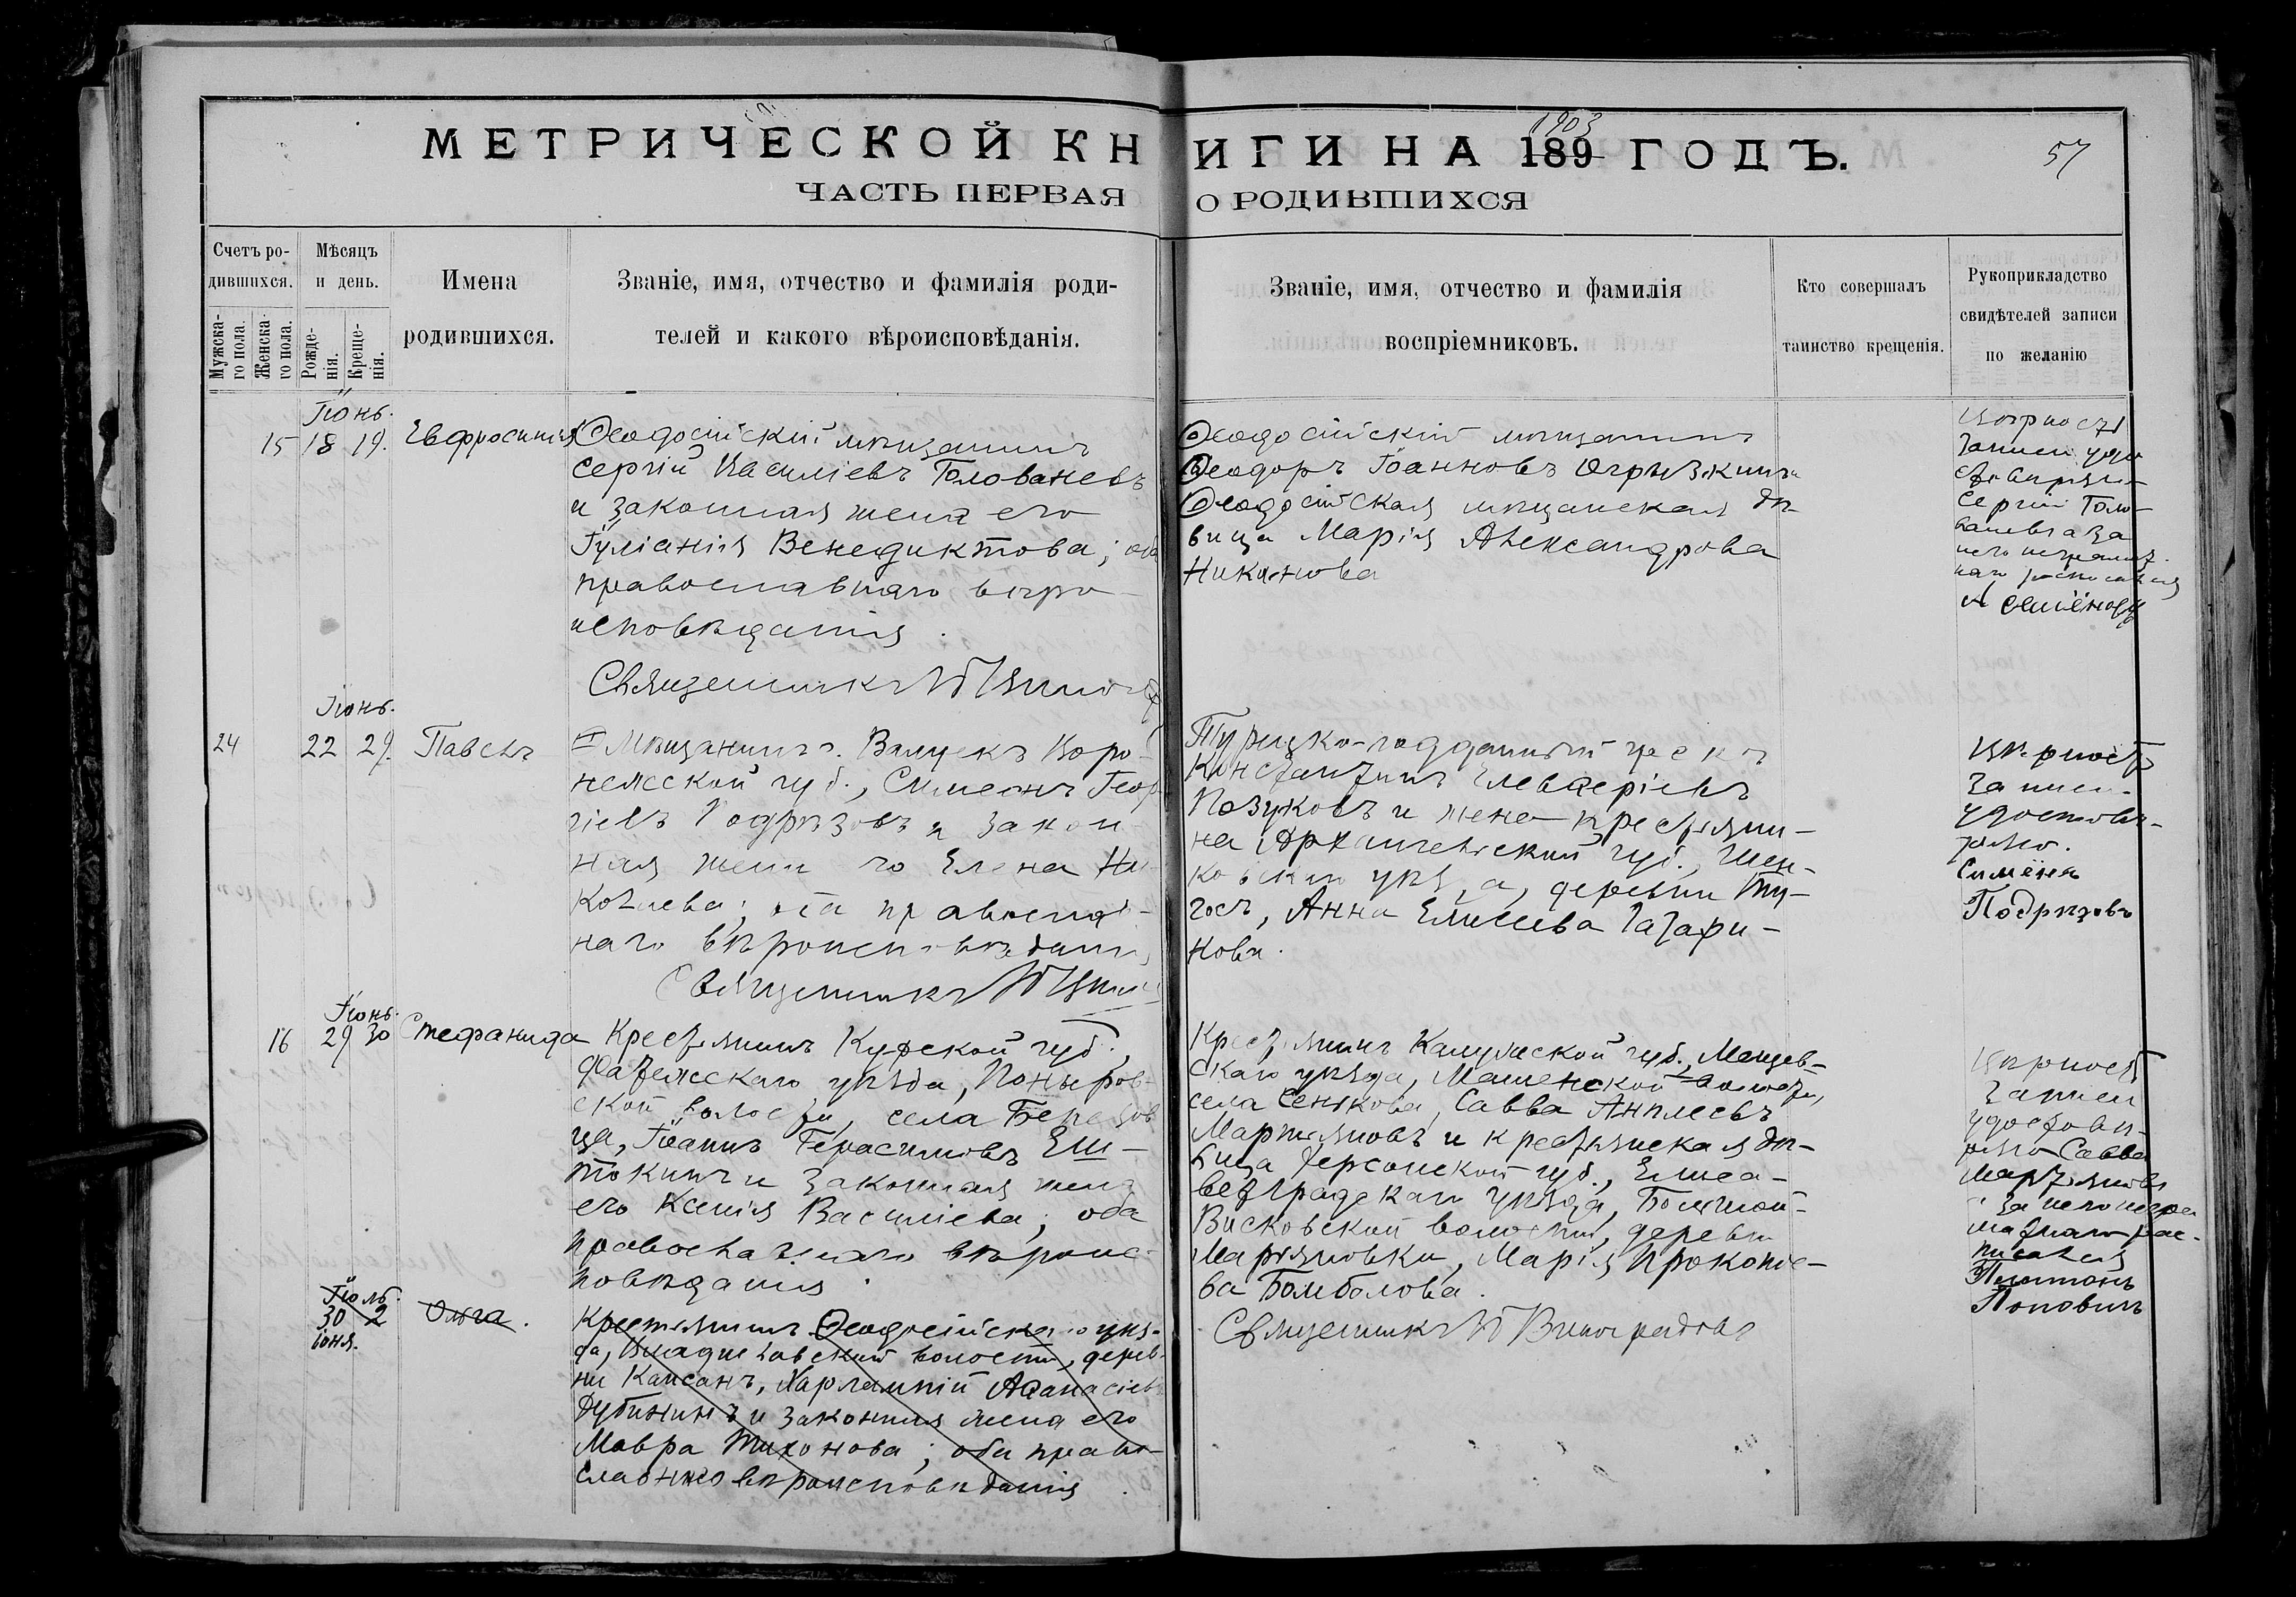 МЕТРИЧЕСКОЙ КНИГИ НА 189 ГОДЪ.
1903
57
ЧАСТЬ ПЕРВАЯ О РОДИВШИХСЯ
Счетъ ро-
дившихся.
Мужска-
го пола.
Женска-
го пола.
Мѣсяцъ
и день.
Рожде-
нія.
Креще-
нія.
Имена
родившихся.
Званіе, имя, отчество и фамилія роди-
телей и какого вѣроисповѣданія.
Званіе, имя, отчество и фамилія
воспріемниковъ.
Кто совершалъ
таинство крещенія.
Рукоприкладство
свидѣтелей записи
по желанію
Іюнь.
15 18 19. Евфросинія
Ѳеодосійскій мѣщанинъ
Сергій Василіевъ Голованевъ
и законная жена его
Іуліанія Венедиктова; оба
православнаго вѣро-
исповѣданія.
Священникъ
Ѳеодосійскій мѣщанинъ
Ѳеодоръ Іоанновъ Огрызкинъ
Ѳеодосійская мѣщанская дѣ-
вица Марія Александрова
Никонова
Вѣрность
записи удо
Сергій Голо-
ванева за
него неграмот
наго росписался
Семёновъ
Іюнь.
24 22 29. Павелъ
Мѣщанинъ г. Валуекъ Воро-
нежской губ., Симеонъ Геор
гіевъ Подрѣзовъ и закон-
ная жена его Елена Ни
колаева; оба православ-
наго вѣроисповѣданія
Священникъ
Турецко-подданный грекъ
Константинъ Елевѳеріевъ
Позуковъ и жена крестьяни-
на Архангельской губ., Шен-
кскаго уѣзда, деревни
Анна Елисеева
кова.
Вѣрность
записи
удостовѣ-
ряю.
Симёнъ
Подрѣзовъ
Іюнь.
16 29 30 Стефанида
Крестьянинъ Курской губ.,
Фатежскаго уѣзда, Поныров-
ской волости, села Березов
ца, Іоаннъ Герасимовъ Еш-
токинъ и законная жена
его Ксенія Василіева; оба
православнаго вѣроис-
повѣданія.
Крестьянинъ Калужской губ., Мещов-
скаго уѣзда, Мошенской волости,
села Сенькова, Савва Анплеевъ
Мартьяновъ и крестьянская дѣ-
вица Херсонской губ., Елиса-
ветградскаго уѣзда, Большой-
Висковской волости, деревни
Марьяновки, Марія Прокопіе-
ва Бомболова.
Священникъ Виноградовъ
Вѣрность
записи
удостовѣ-
ряю Савва
Мартьяновъ
за него негра
мотнаго рос-
писался
Платонъ
Поповичъ
Іюль.
30 2 Ольга.
Іюня.
Крестьянинъ Ѳеодосійскаго уѣз-
да, Владиславской волости, дерев-
ни Капсанъ, Харлампій Аѳанасіевъ
Дубининъ и законная жена его
Мавра Тихонова; оба право-
славнаго вѣроисповѣданія